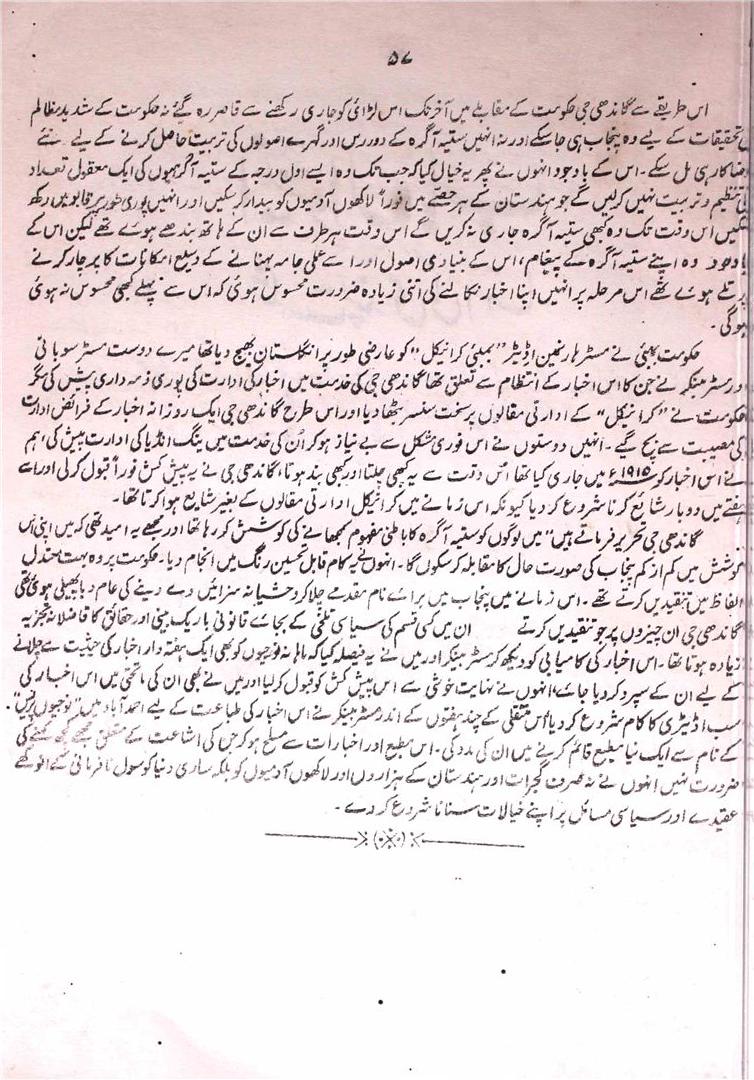 ۵۷
اس طریقے سے گاندھی جی حکومت کے مقابلے میں آخر تک اس لڑائی کو جاری رکھنے سے قاصر رہ گئے نہ حکومت کے شدید مظالم
تحقیقات کے لیے وہ پنجاب ہی جا سکے اور نہ انہیں ستیہ آگرہ کے دور رس اور گہرے اصولوں کی تربیت حاصل کرنے کے لیے نئے
رضا کار ہی مل سکے۔ اس کے باوجود انہوں نے پھر یہ خیال کیا کہ جب تک وہ ایسے اول درجہ کے ستیہ آگرہیوں کی ایک معقول تعداد
کی تنظیم و تربیت نہیں کر لیں گے جو ہندستان کے ہر حصے میں فوراً لاکھوں آدمیوں کو بیدار کر سکیں اور انہیں پوری طور پر قابو میں رکھ
سکیں اس وقت تک وہ کبھی ستیہ آگرہ جاری نہ کریں گے اس وقت ہر طرف سے ان کے ہاتھ بندھے ہوئے تھے لیکن اس کے
باوجود وہ اپنے ستیہ آگرہ کے پیغام، اس کے بنیادی اصول اور اسے عملی جامہ پہنانے کے وسیع امکانات کا پرچار کرنے
پر تلے ہوئے تھے اس مرحلہ پر انہیں اپنا اخبار نکالنے کی اتنی زیادہ ضرورت محسوس ہوئی کہ اس سے پہلے کبھی محسوس نہ ہوئی
ہوگی۔
حکومت بمبئی نے مسٹر ہارنمین اڈیٹر "بمبئی کرانیکل" کو عارضی طور پر انگلستان بھیج دیا تھا میرے دوست مسٹر سوبانی
اور مسٹر بینکر نے جن کا اس اخبار کے انتظام سے تعلق تھا گاندھی جی کی خدمت میں اخبار کی ادارت کی پوری ذمہ داری پیش کی مگر
حکومت نے "کرانیکل" کے ادارتی مقالوں پر سخت سنسر بٹھا دیا اور اس طرح گاندھی جی ایک روزانہ اخبار کے فرائض ادارت
کی مصیبت سے بچ گیے۔ انہیں دوستوں نے اس فوری مشکل سے بے نیاز ہو کر ان کی خدمت میں ینگ انڈیا کی ادارت پیش کی، ہم
نے اس اخبار کو ۱۹۱۵ء میں جاری کیا تھا اس وقت سے یہ کبھی چلتا اور کبھی بند ہوتا، گاندھی جی نے یہ پیش کش فوراً قبول کر لی اور اسے
ہفتے میں دو بار شایع کرنا شروع کر دیا کیونکہ اس زمانے میں کرانیکل ادارتی مقالوں کے بغیر شایع ہوا کرتا تھا۔
گاندھی جی تحریر فرماتے ہیں "میں لوگوں کو ستیہ آگرہ کا باطنی مفہوم سمجھانے کی کوشش کر رہا تھا اور مجھے یہ امید تھی کہ میں اپنی اس
کوشش میں کم از کم پنجاب کی صورت حال کا مقابلہ کر سکوں گا۔ انہوں نے یہ کام قابل تحسین رنگ میں انجام دیا۔ حکومت پر وہ بہت معتدل
الفاظ میں تنقیدیں کرتے تھے۔ اس زمانے میں پنجاب میں برائے نام مقدمے چلا کر وحشیانہ سزائیں دے دینے کی عام وبا پھیلی ہوئی تھی
گاندھی جی ان چیزوں پر جو تنقیدیں کرتے ان میں کسی قسم کی سیاسی تلخی کے بجائے قانونی باریک بینی اور حقائق کا فاضلانہ تجزیہ
زیادہ ہوتا تھا۔ اس اخبار کی کامیابی کو دیکھ کر مسٹر بینکر اور میں نے یہ فیصلہ کیا کہ ماہانہ نوجیون کو بھی ایک ہفتہ وار اخبار کی حیثیت سے چلانے
کے لیے ان کے سپرد کر دیا جائے، انہوں نے نہایت خوشی سے اس پیش کش کو قبول کر لیا اور میں نے بھی ان کی ماتحتی میں اس اخبار کی
سب اڈیٹری کا کام شروع کر دیا، اس منتقلی کے چند ہفتوں کے اندر مسٹر بینکر نے اس اخبار کی طباعت کے لیے احمد آباد میں "نوجیون پریس"
کے نام سے ایک نیا مطبع قائم کرنے میں ان کی مدد کی۔ اس مطبع اور اخبارات سے مسلح ہو کر جن کی اشاعت کے متعلق مجھے کچھ کہنے کی
ضرورت نہیں انہوں نے نہ صرف گجرات اور ہندستان کے ہزاروں اور لاکھوں آدمیوں کو بلکہ ساری دنیا کو سول نافرمانی کے انوکھے
عقیدے اور سیاسی مسائل پر اپنے خیالات سنانا شروع کر دے۔